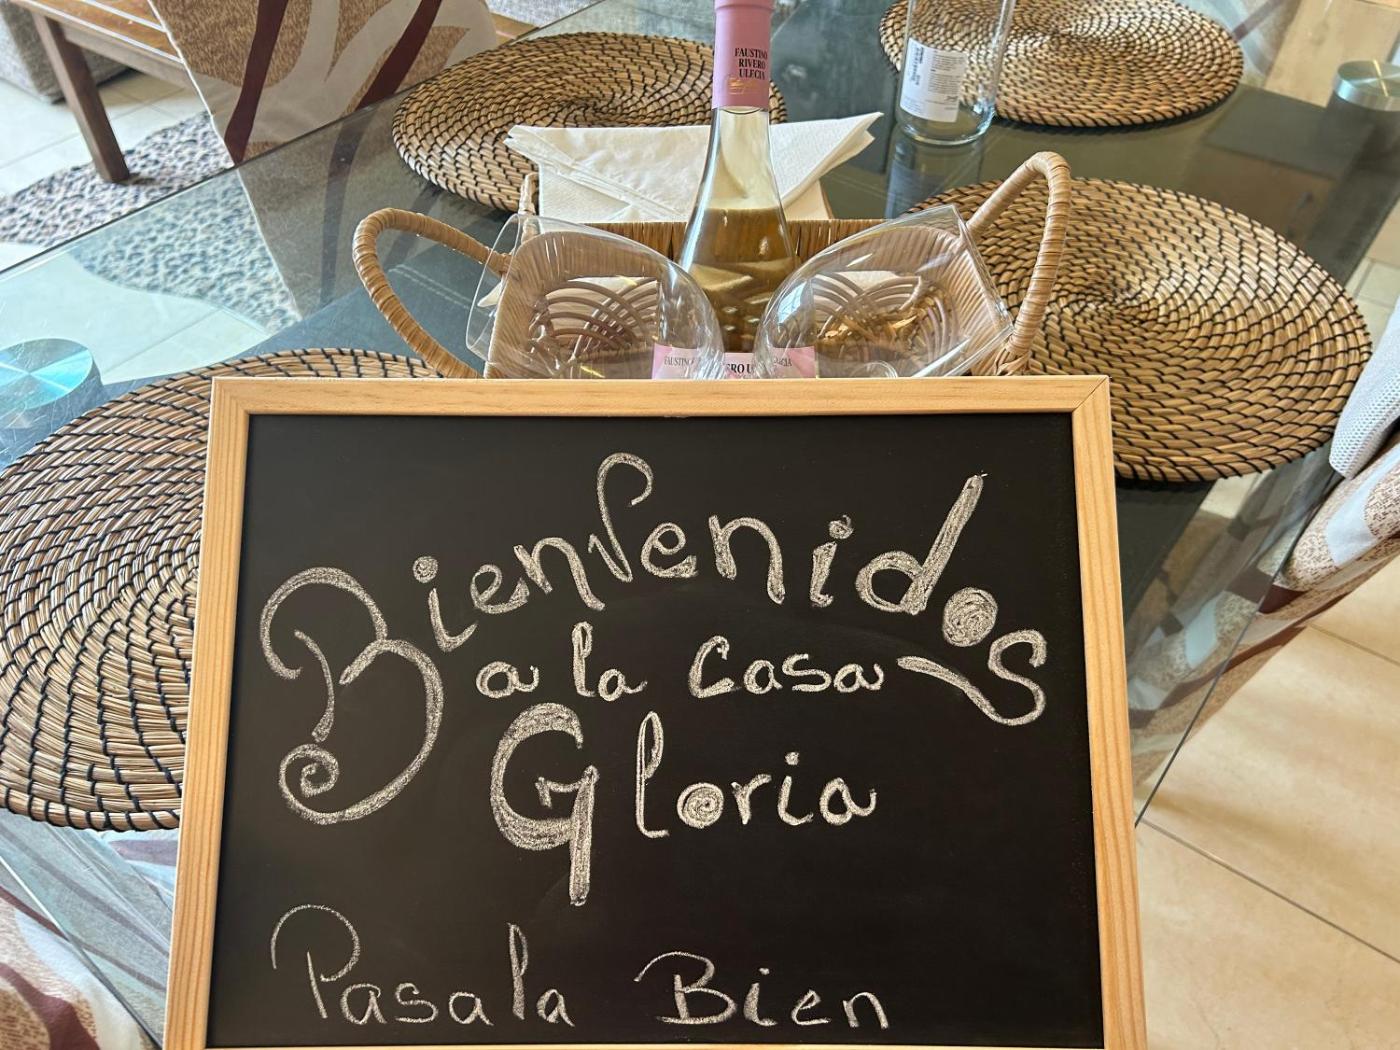 FAUSTINO
RIVERO
ULECIA
Bienvenidos
a la Casa
Gloria
Pasala Bien